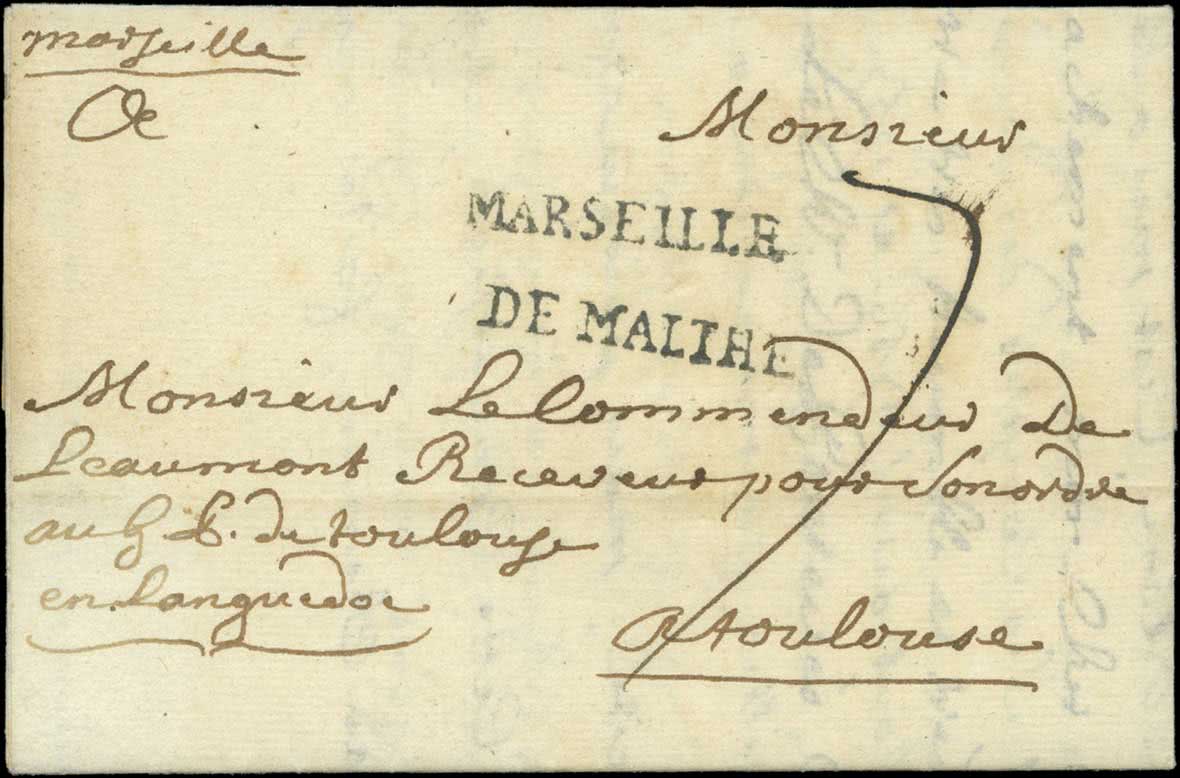 marseille
Monsieur
MARSEILLE
DE MALTHE
7
Monsieur Le Commendeur De
Leaumont Receveur pour Son ordre
au G P. du toulouse
en Languedoc
A toulouse